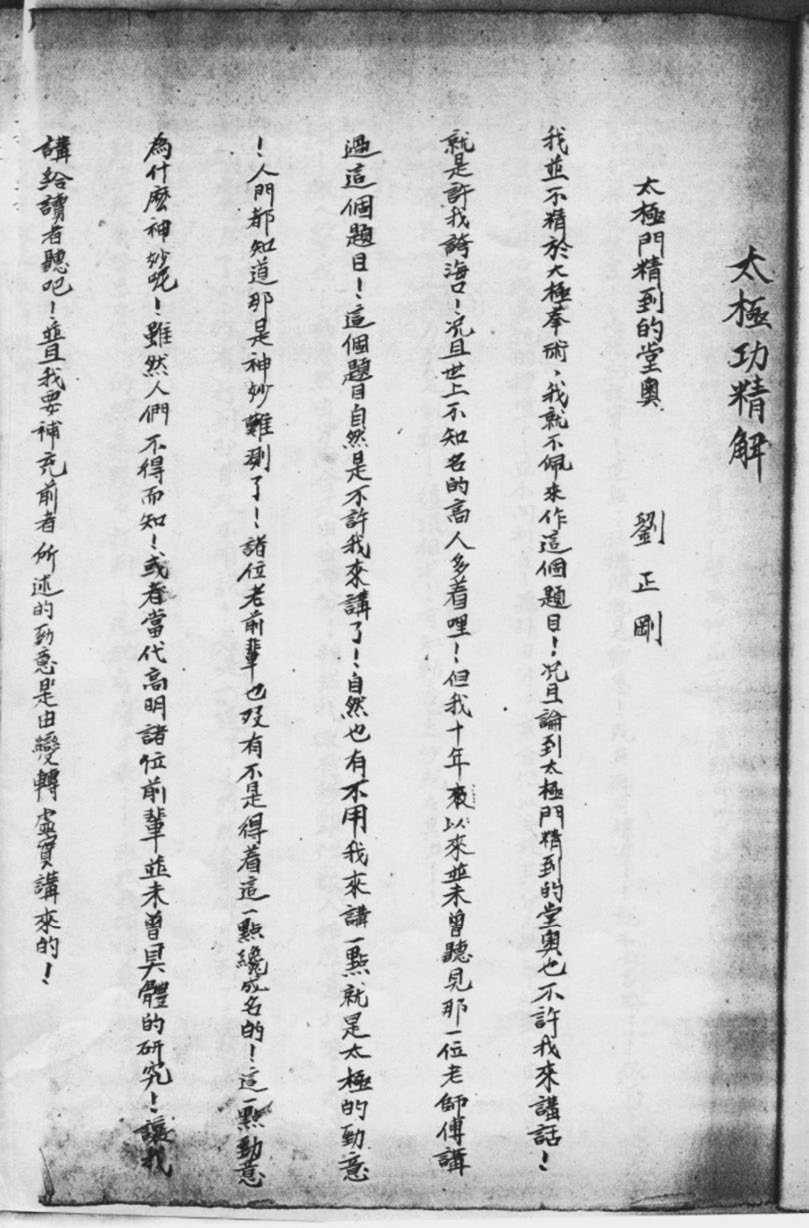 太極功精解
太極門精到的堂奧 劉正剛
我並不精於太極拳術、我就不佩來作這個題目！況且論到太極門精到的堂奧也不許我來講話！
就是許我誇海口！况且世上不知名的高人多着哩！但我十年來以來並未曾聽見那一位老師傅講
過這個題目！這個題目自然是不許我來講了！自然也有不用我來講一點就是太極的勁意
！人門都知道那是神妙難測了！諸位老前輩也沒有不是得着這一點纔成名的！這一點勁意
為什麽神妙呢！雖然人們不得而知！或者當代高明諸位前輩並未曾具體的研究！讓我
講給讀者聽吧！並且我要補充前者所述的勁意是由變轉虛實講來的！